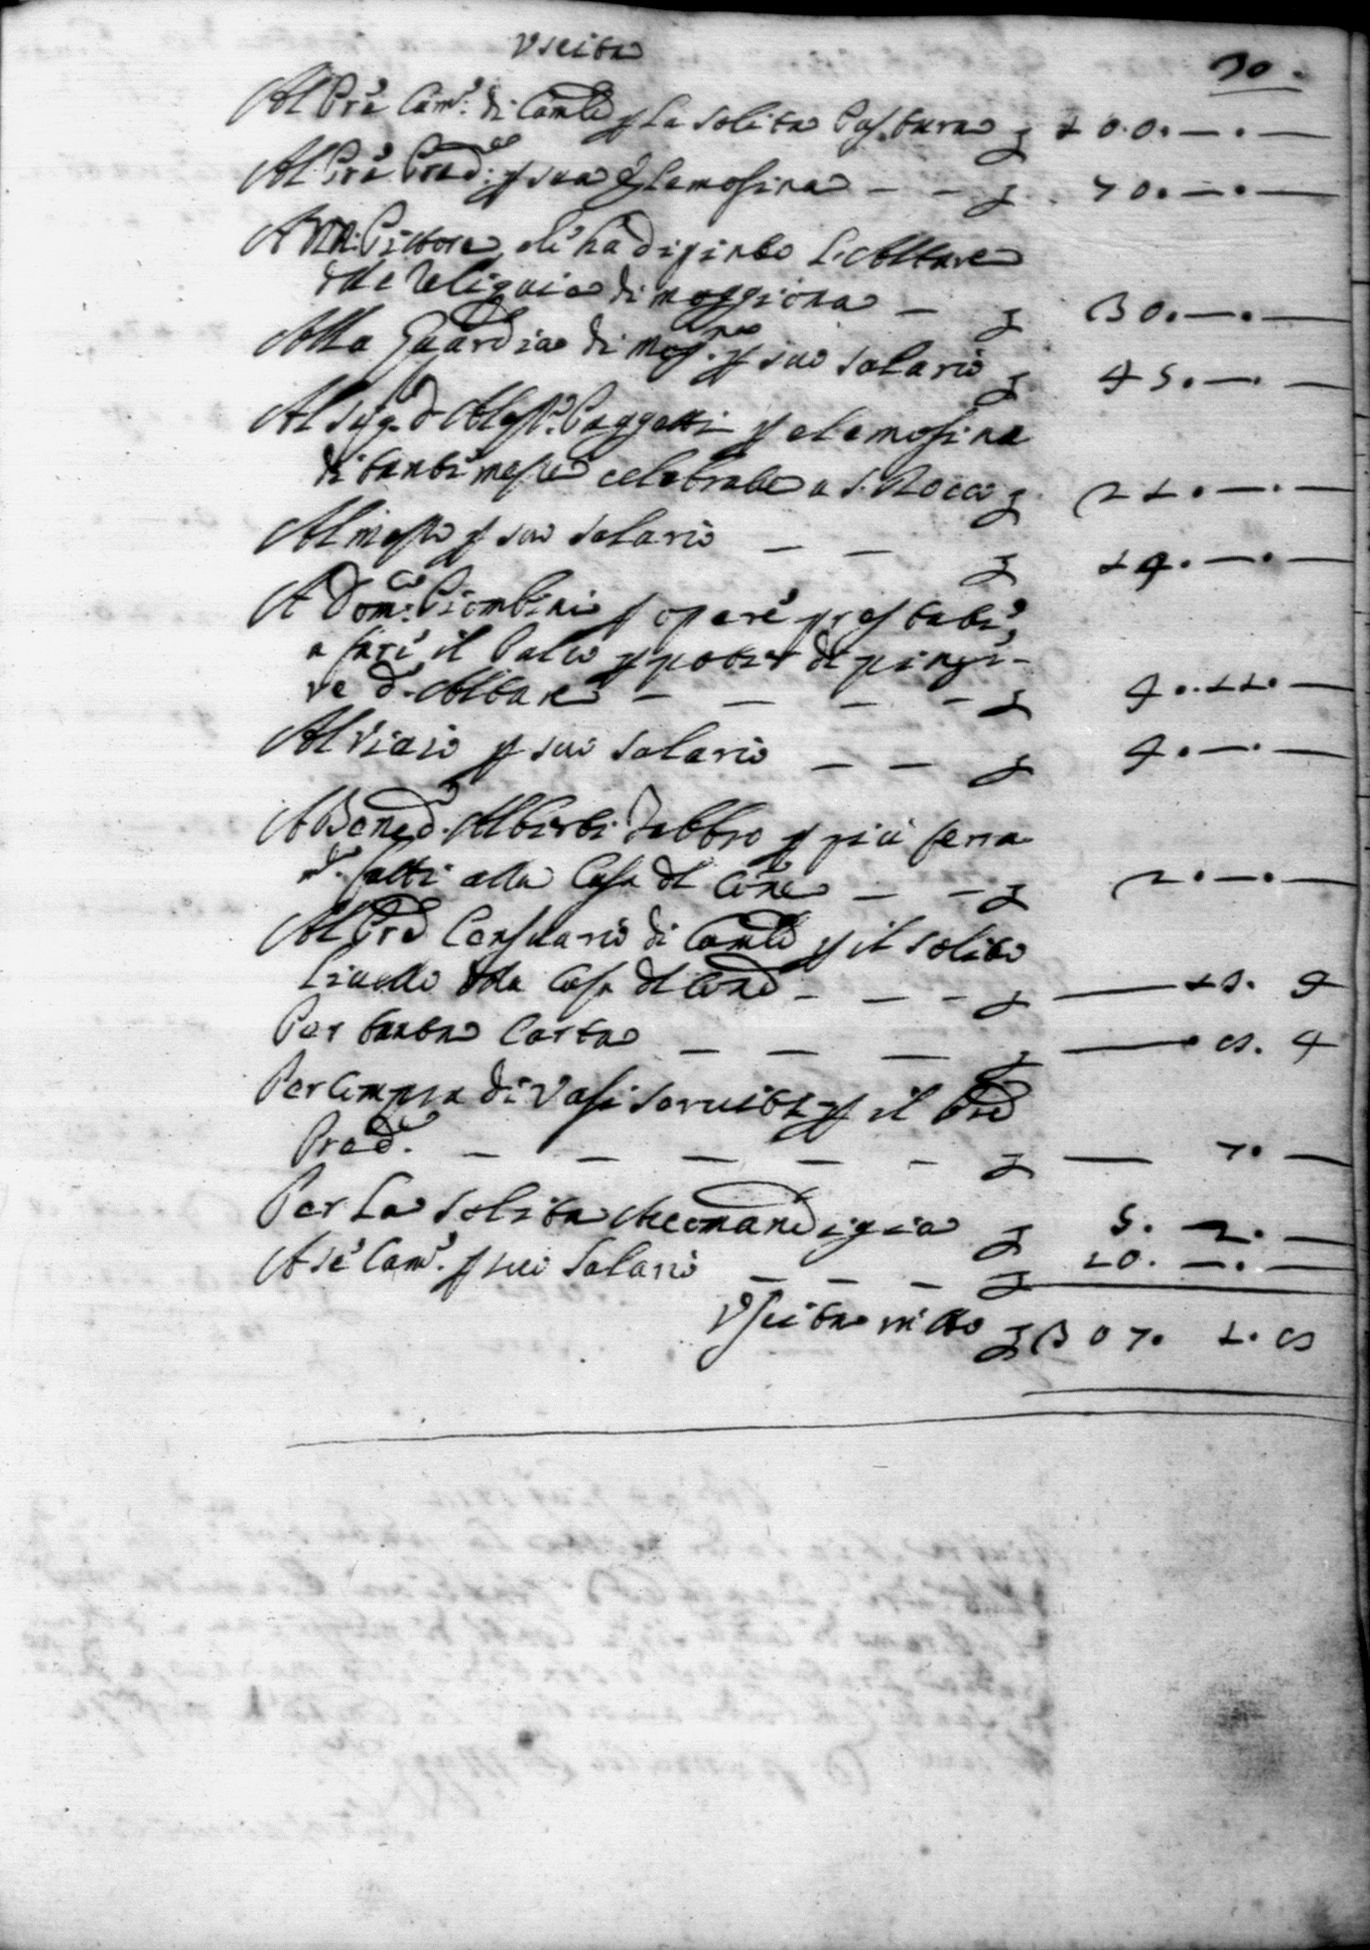 Uscita
30.
Al Pre Camo. di Camli p La solita Pastura £ 100.—.—
Al Pre Pred.re p sua Elemosina — — £ 70.—.—
A Pittore, che hà dipinto L'Altare
delle Reliquie di moggiona — £ 30.—.—
Alla Guardia di mogna. p suo salario £ 45.—.—
Al Sig. d Alesso. Paggetti p elemosina
di tante messe celebrate a S. Rocco £ 21.—.—
Al messo p suo salario — — £ 14.—.—
A Domco. Piombini p opere prestate,
a fare il Palco p poter dipinge-
re do. Altare — — — — £ 4.11.—
Al Viaio p suo salario — — £ 4.—.—
A Bened. Alberti Fabbro p più ferra
mti. fatti alla Casa del Cone — — £ 2.—.—
Al Pre Censuario di Camli p il solito
Livello della Casa del Cone — — — £ — 13. 4
Per tanta Carta — — — £ — 6. 4
Per Compra di Vasi servite p il Pre
Pred.re — — — — — £ — 7. —
Per La solita Accomandigia £ 5. 2. —
A Se Camo. p suo Salario — — — £ 10. —.—
Uscita in tto £ 307. 1. 8